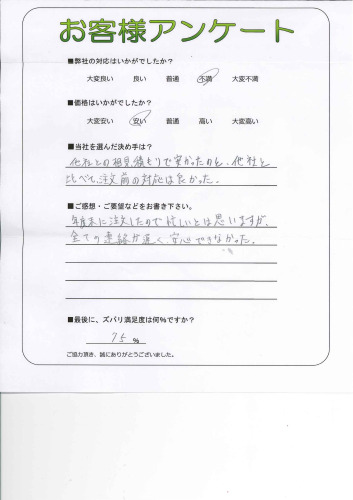 お客様アンケート
■弊社の対応はいかがでしたか?
大変良い 良い 普通 不満 大変不満
■価格はいかがでしたか?
大変安い 安い 普通 高い 大変高い
■当社を選んだ決め手は?
他社との相見積もりで安かったのと、他社と
比べて、注文前の対応は良かった。
■ご感想・ご要望などをお書き下さい。
年度末に注文したので忙しいとは思いますが、
全ての連絡が遅く、安心できなかった。
■最後に、ズバリ満足度は何%ですか?
75 %
ご協力頂き、誠にありがとうございました。